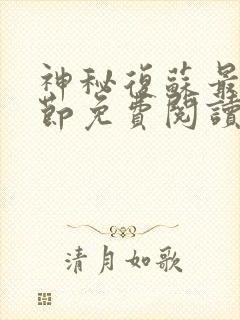 神秘復蘇最
節免費閱讀
清月如歌